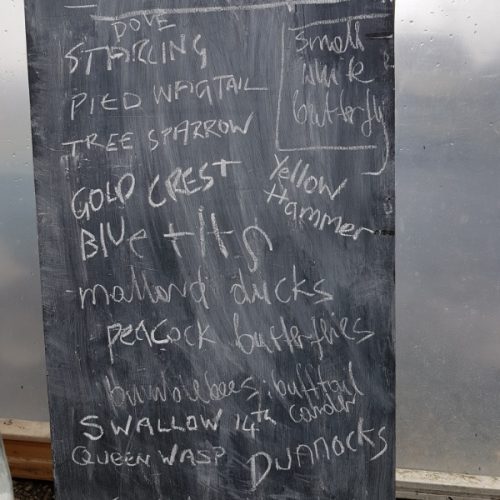 DOVE
STARLING
small
white
butterfly
PIED WAGTAIL
TREE SPARROW
GOLD CREST
Yellow
Hammer
Blue tits
mallard ducks
PEACOCK butterflies
bumblebees: bufftail
carder
SWALLOW 14th
QUEEN WASP
DUNNOCKS